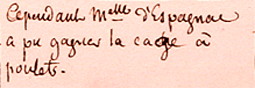 Cependant Melle d'Espagnac
a pu gagner la cage à
poulets.